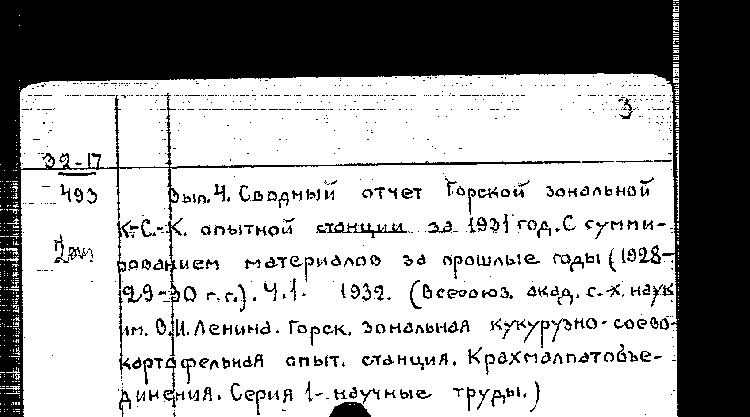 3
32-17
493
Вып. 4. Сводный отчет Горской зональной
К.-С.-К. опытной станции за 1931 год. С сумми-
рованием материалов за прошлые годы (1928-
29-30 г.г.). Ч.1. 1932. (Всесоюз. акад. с.-х. наук
им. В.И. Ленина. Горск. зональная кукурузно-соево-
картофельная опыт. станция. Крахмалпатовъе-
динения. Серия 1- научные труды.)